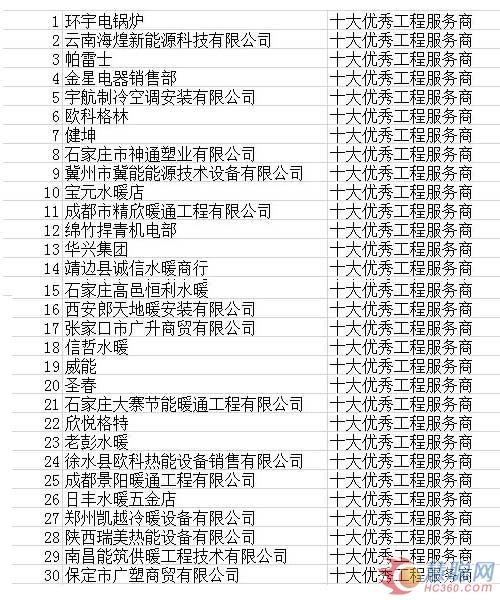 1 环宇电锅炉 十大优秀工程服务商
2 云南海煌新能源科技有限公司 十大优秀工程服务商
3 帕雷士 十大优秀工程服务商
4 金星电器销售部 十大优秀工程服务商
5 宇航制冷空调安装有限公司 十大优秀工程服务商
6 欧科格林 十大优秀工程服务商
7 健坤 十大优秀工程服务商
8 石家庄市神通塑业有限公司 十大优秀工程服务商
9 冀州市冀能能源技术设备有限公司 十大优秀工程服务商
10 宝元水暖店 十大优秀工程服务商
11 成都市精欣暖通工程有限公司 十大优秀工程服务商
12 绵竹捍青机电部 十大优秀工程服务商
13 华兴集团 十大优秀工程服务商
14 靖边县诚信水暖商行 十大优秀工程服务商
15 石家庄高邑恒利水暖 十大优秀工程服务商
16 西安郎天地暖安装有限公司 十大优秀工程服务商
17 张家口市广升商贸有限公司 十大优秀工程服务商
18 信哲水暖 十大优秀工程服务商
19 威能 十大优秀工程服务商
20 圣春 十大优秀工程服务商
21 石家庄大寨节能暖通工程有限公司 十大优秀工程服务商
22 欣悦格特 十大优秀工程服务商
23 老彭水暖 十大优秀工程服务商
24 徐水县欧科热能设备销售有限公司 十大优秀工程服务商
25 成都景阳暖通工程有限公司 十大优秀工程服务商
26 日丰水暖五金店 十大优秀工程服务商
27 郑州凯越冷暖设备有限公司 十大优秀工程服务商
28 陕西瑞美热能设备有限公司 十大优秀工程服务商
29 南昌能筑供暖工程技术有限公司 十大优秀工程服务商
30 保定市广塑商贸有限公司 十大优秀工程服务商
慧聪网
HC360.COM